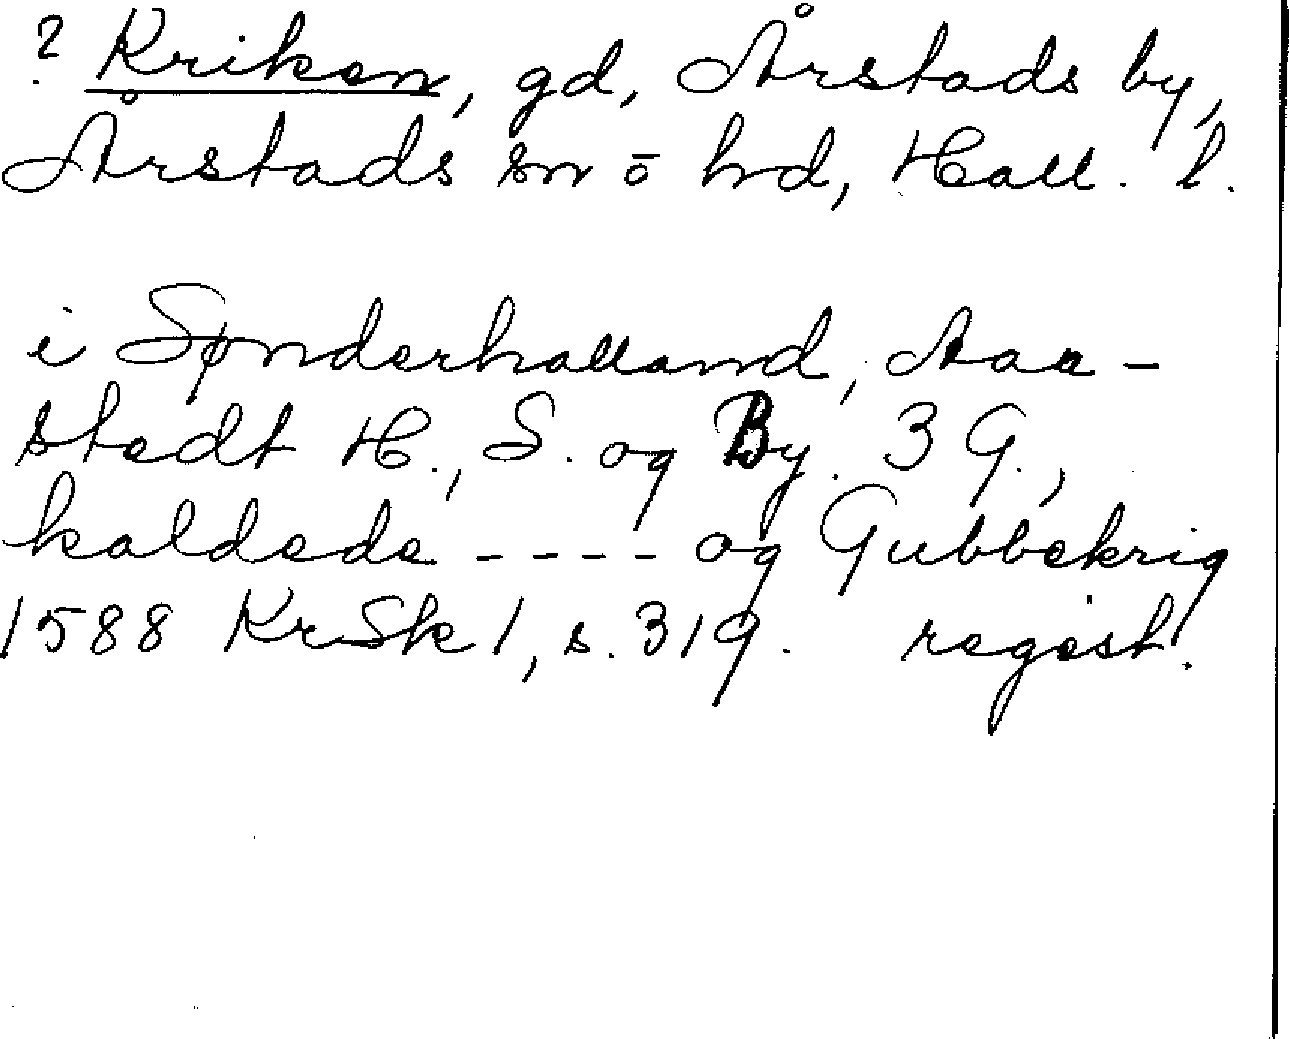 ? Kriken, gd, Årstads by,
Årstads sn o hd, Hall. l.
i Sønderhalland, Aaa-
stedt H., S. og By. 3 G.,
kaldede ---- og Gubbekrig
1588 KrSk 1, s. 319. regest.